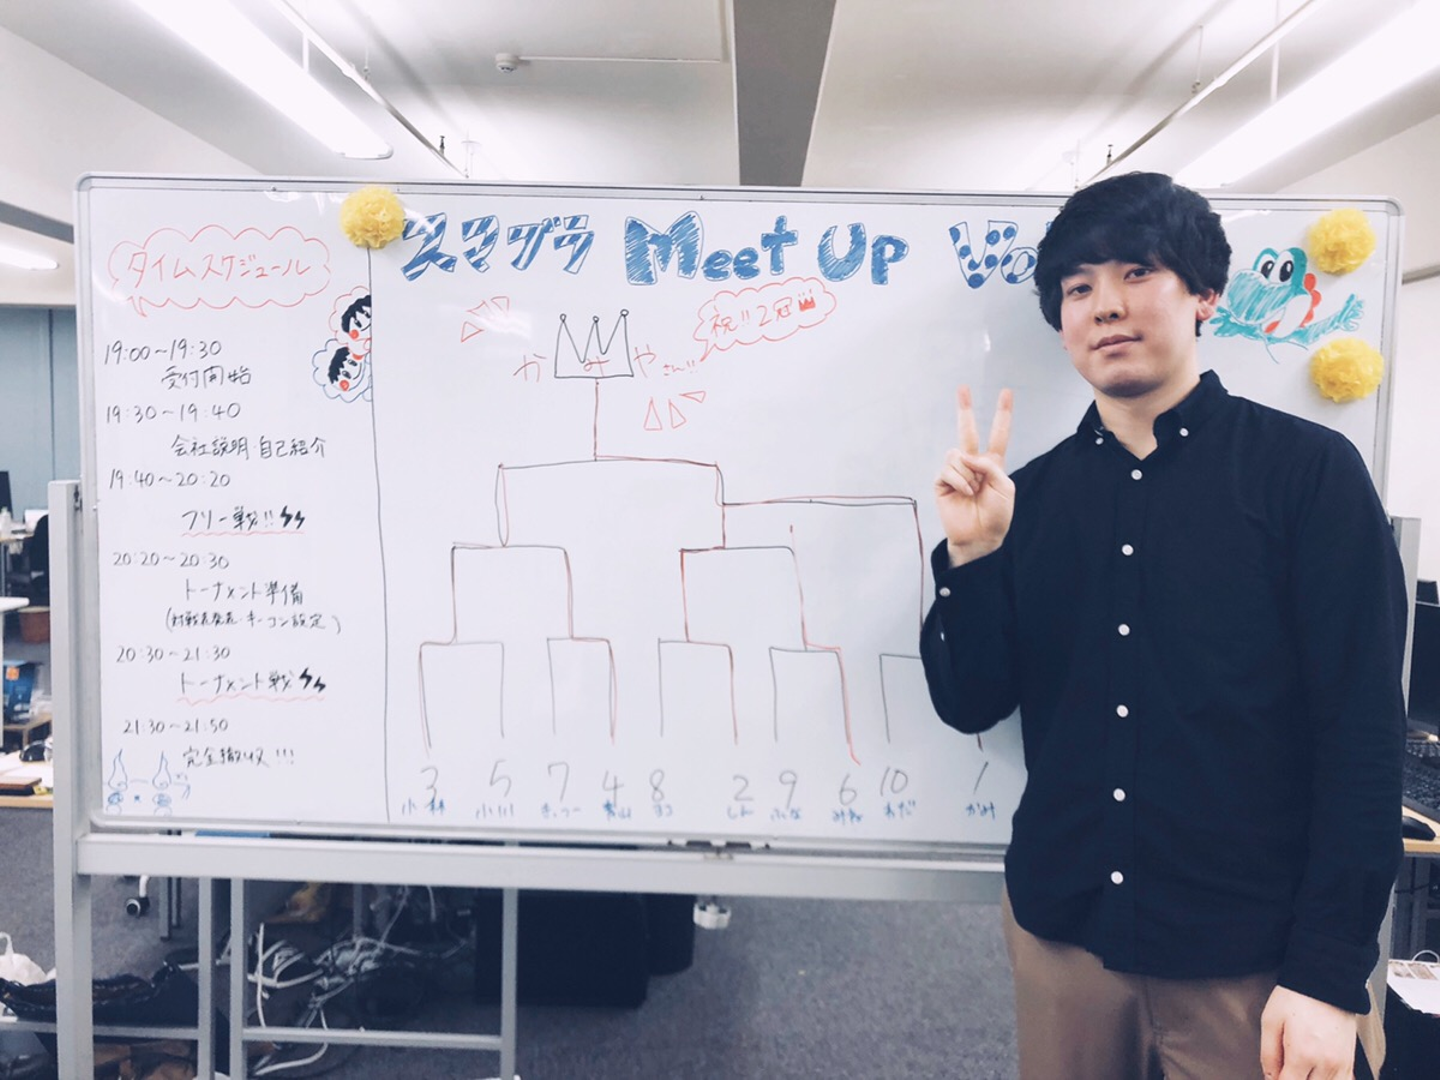 スマブラ Meet Up Vo
タイムスケジュール
19:00~19:30
受付開始
19:30~19:40
会社説明・自己紹介
19:40~20:20
フリー戦!!
20:20~20:30
トーナメント準備
(対戦表発表・キーコン設定)
20:30~21:30
トーナメント戦
21:30~21:50
完全撤収!!!
祝!!2冠
かみやさん!!
3 5 7 4 8 2 9 6 10 1
小林 小川 青山 ヨコ しん ふな わだ かみ